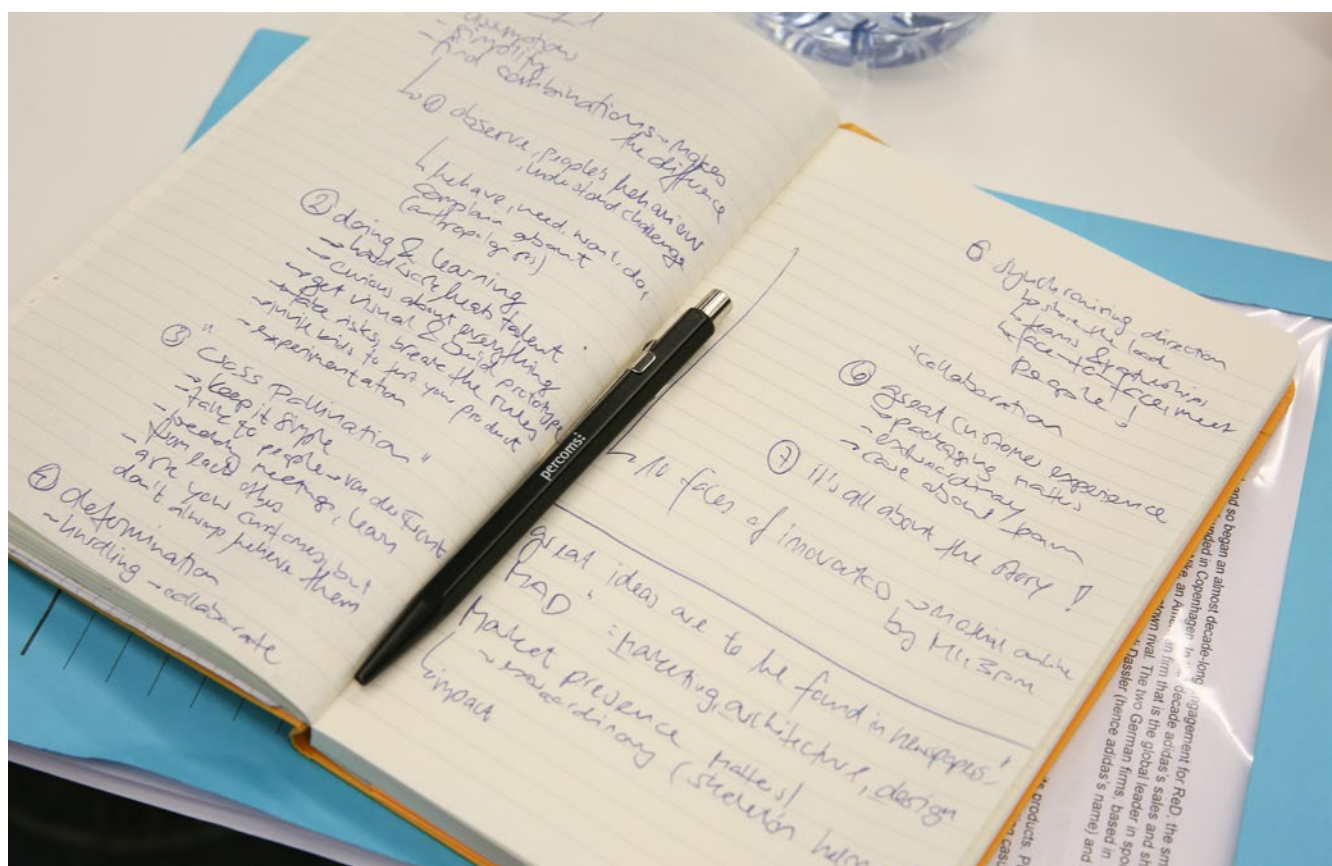 assumption
simplify
find combinations → makes
the difference
↳ ① observe, people's behaviour
, understand challenge
↳ behave, need, want, do,
complain about
② doing & learning
→ hard work beats talent
→ curious about everything
→ get visual & build prototype
→ take risks, break the rules
→ invite kids to test your product
→ experimentation
③ "cross pollination"
→ keep it simple
- talk to people → van der
- weekly meetings, learn
from each other
- ask your customers, but
don't always believe them
④ determination
→ hurdling → collaborate
6 synchronising direction
to share the load
↳ teams &
↳ face-to-face meet
people!
collaboration
⑥ great customer experience
→ packaging matters
→ extraordinary
→ care about
⑦ it's all about the story!
↳ 10 faces of innovation → material online
by MI, 3pm
great ideas are to be found in newspapers!
MAD = marketing, architecture, design
Market presence matters!
↳ → extraordinary (skeleton
impact
percoms:
and so began an almost decade-long engagement for ReD, the
founded in Copenhagen. In
decade adidas's sales and
an American firm that is the global leader in
rival. The two German firms, based in
Dassler (hence adidas's name) and
products.